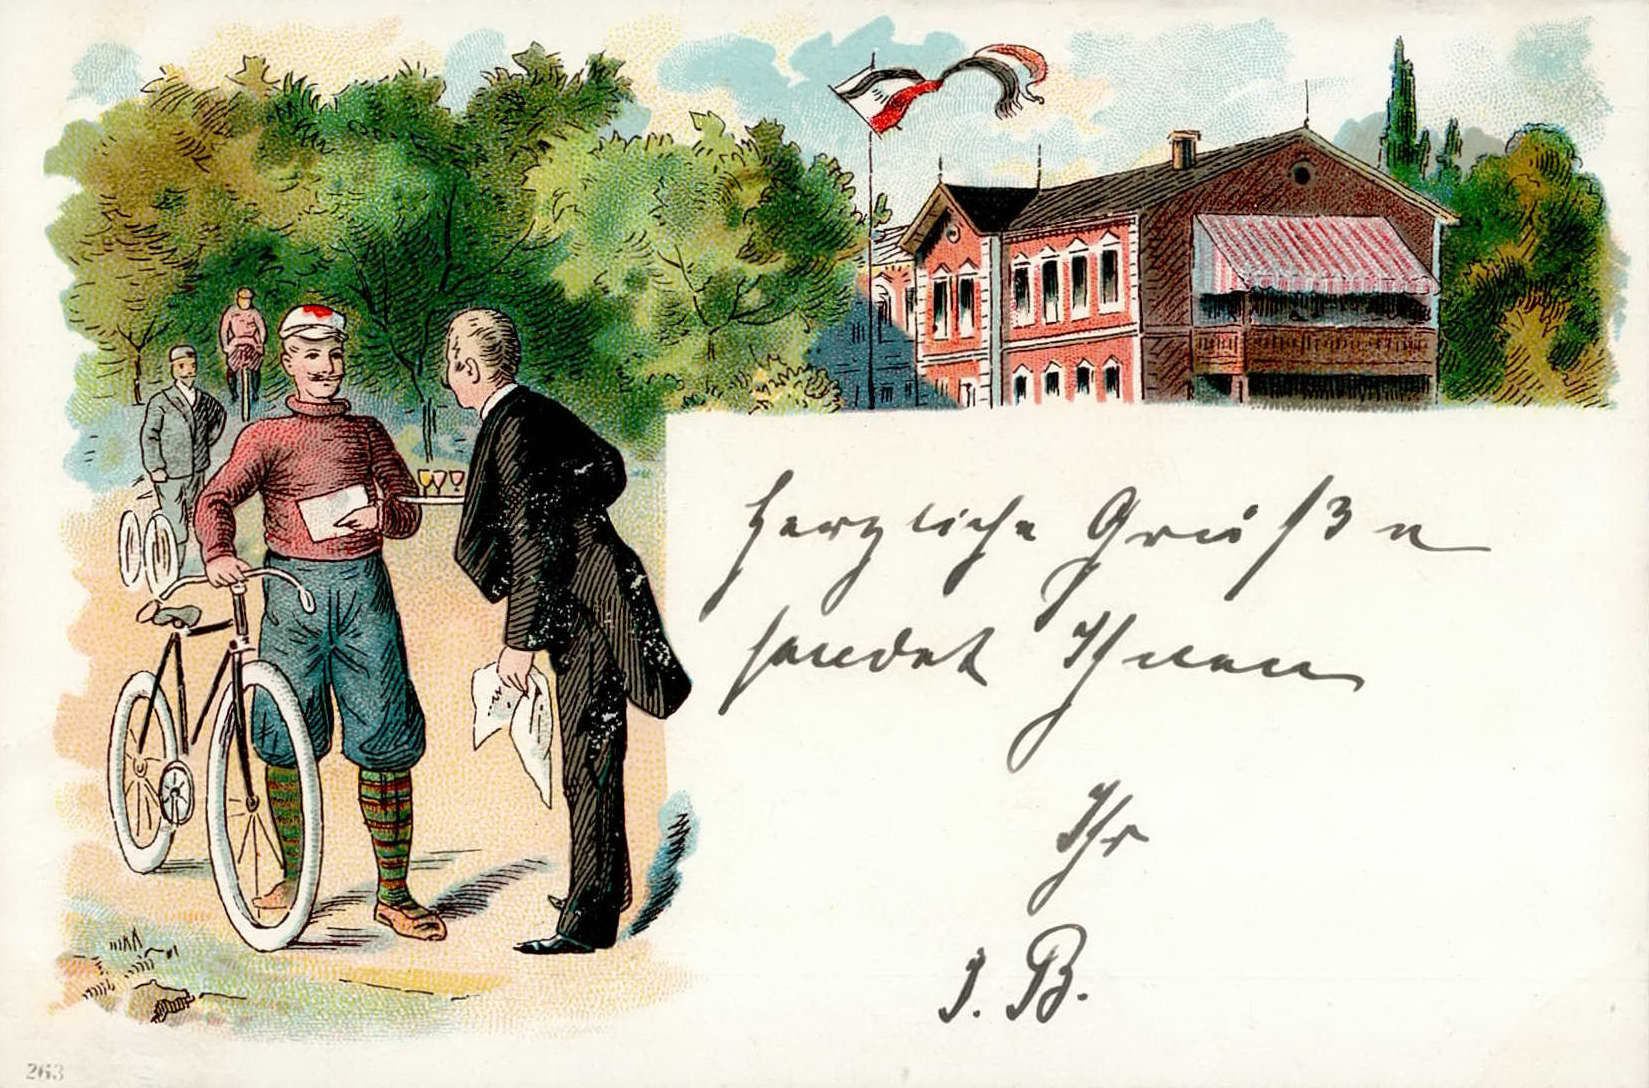 Herzliche Grüße
sendet Ihnen
Ihr
J. B.
263